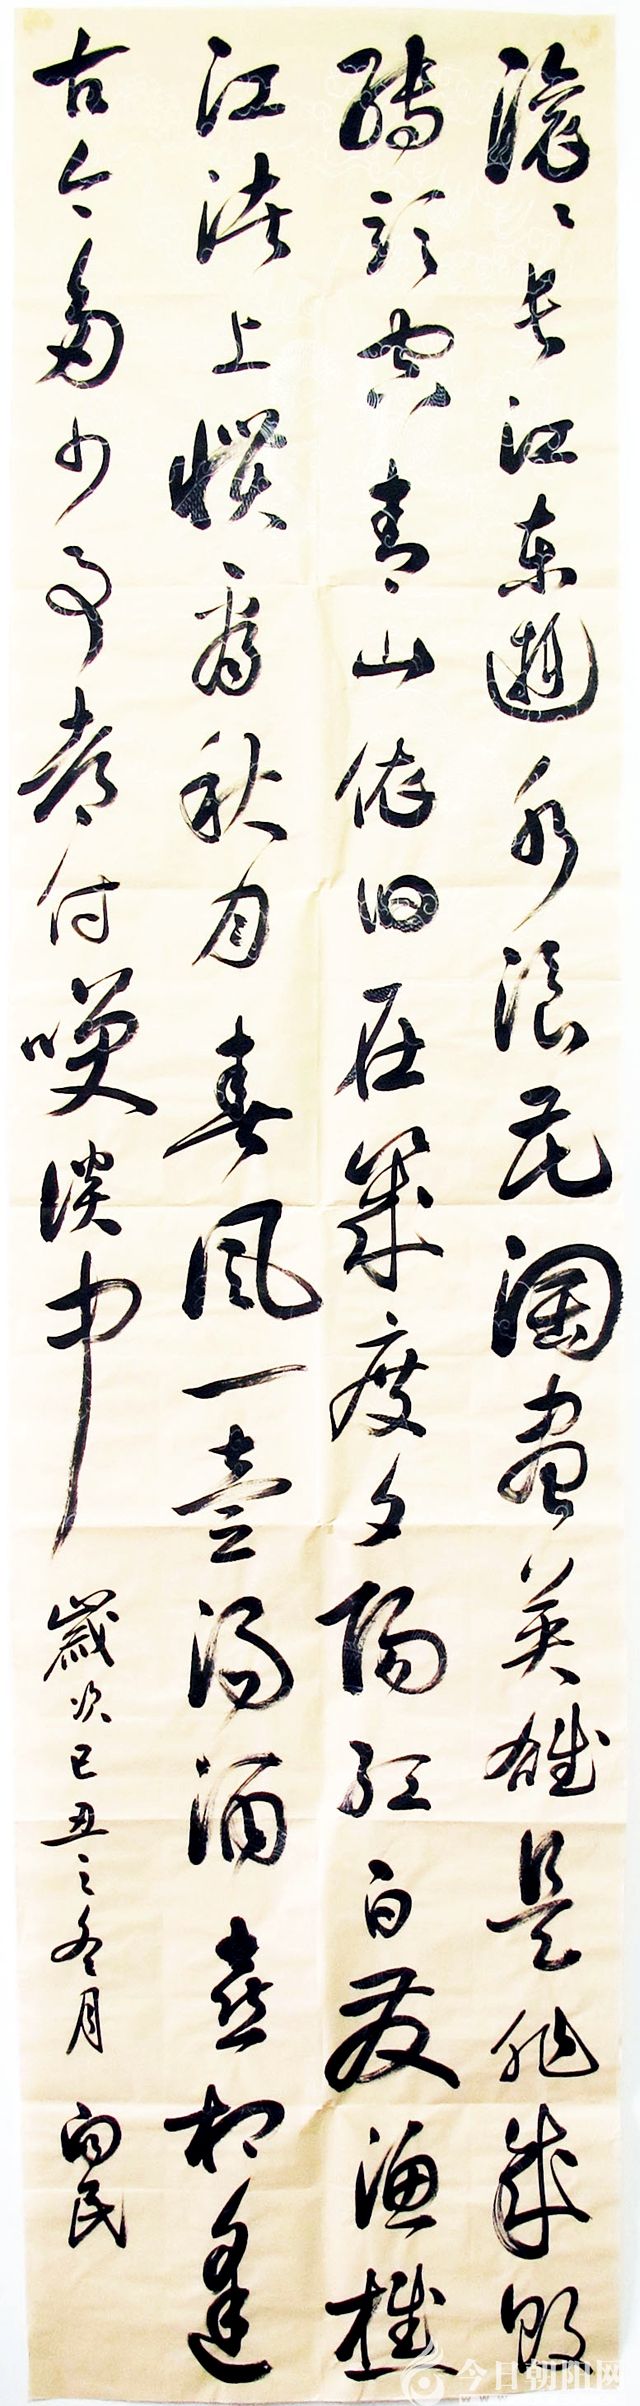 滚々长江东逝水浪花淘尽英雄是非成败
转头空青山依旧在几度夕阳红白发渔樵
江渚上惯看秋月春风一壶浊酒喜相逢
古今多少事都付笑谈中 歲次己丑之冬月 向民
今日朝阳网